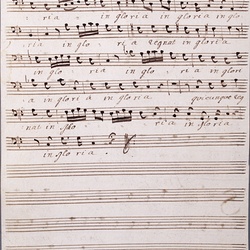 ria in gloria in gloria
ria in glo ria regnat in gloria
in glo ria in gloria in
ria in gloria in gloria quicunque reg
nat in glo ria in gloria
in gloria.